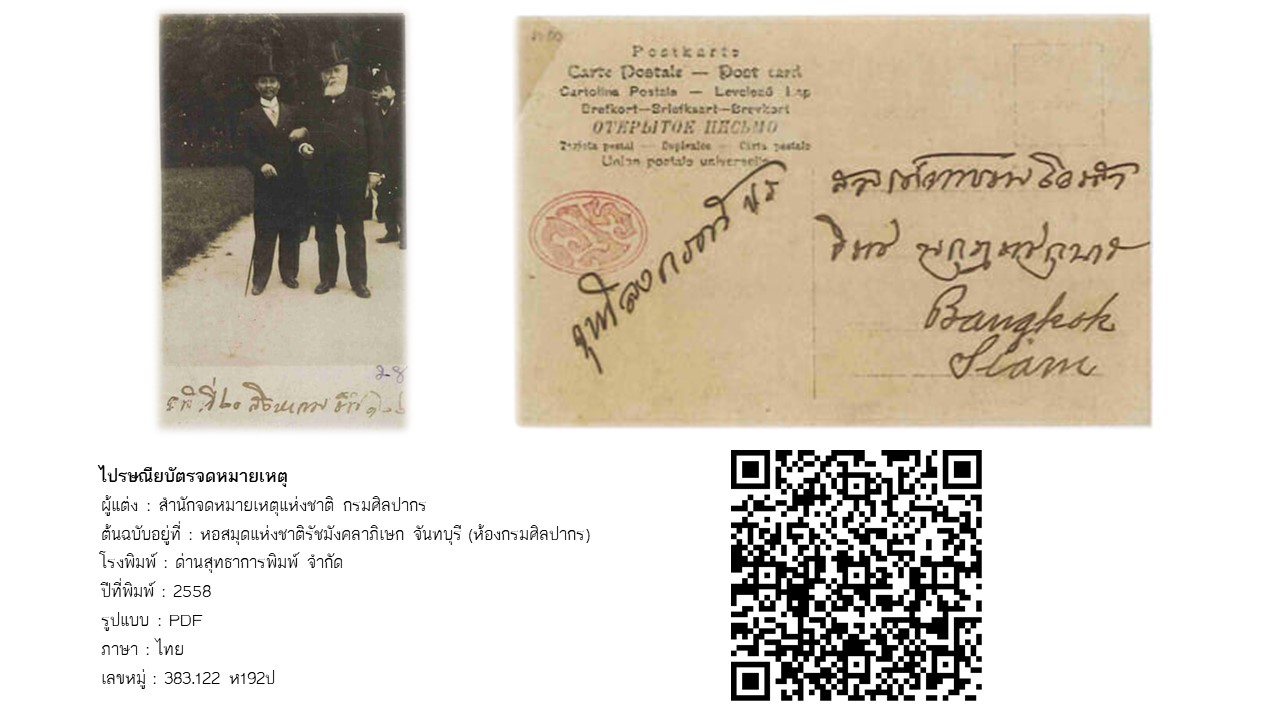 28
Postkarte
Carte Postale — Post card
Cartolina Postale — Levelező Lap
Brefkort—Briefkaart—Brevkort
ОТКРЫТОЕ ПИСЬМО
Tarjeta postal — Dopisnice — Carta postale
Union postale universelle
Bangkok
Siam
ไปรษณียบัตรจดหมายเหตุ
ผู้แต่ง : สำนักจดหมายเหตุแห่งชาติ กรมศิลปากร
ต้นฉบับอยู่ที่ : หอสมุดแห่งชาติรัชมังคลาภิเษก จันทบุรี (ห้องกรมศิลปากร)
โรงพิมพ์ : ด่านสุทธาการพิมพ์ จำกัด
ปีที่พิมพ์ : 2558
รูปแบบ : PDF
ภาษา : ไทย
เลขหมู่ : 383.122 ห192ป